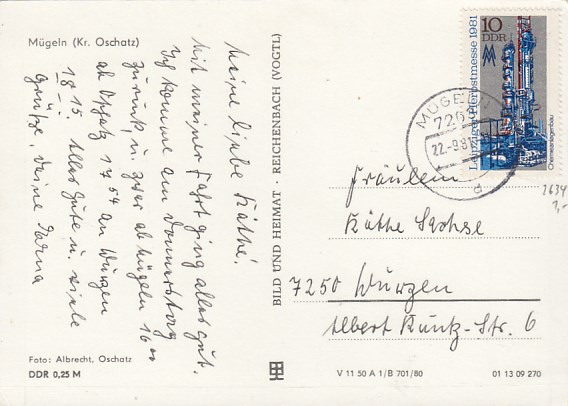 Mügeln (Kr. Oschatz)
Meine liebe Käthe!
Mit meiner Fahrt ging alles gut.
Ich komme am Donnerstag
zurück u. zwar ab Mügeln 16⁰⁰
ab Oschatz 17⁵⁴ an Wurzen
18¹⁵. Alles Gute u. viele
Grüße, Deine
Foto: Albrecht, Oschatz
DDR 0,25 M
BILD UND HEIMAT · REICHENBACH (VOGTL)
10
DDR
Leipziger Herbstmesse 1981
Chemieanlagenbau
MÜGELN
726
22.-9.81
d
2634
2,-
Fräulein
Käthe Sachse
7250 Wurzen
Albert Kuntz-Str. 6
V 11 50 A 1/B 701/80
01 13 09 270